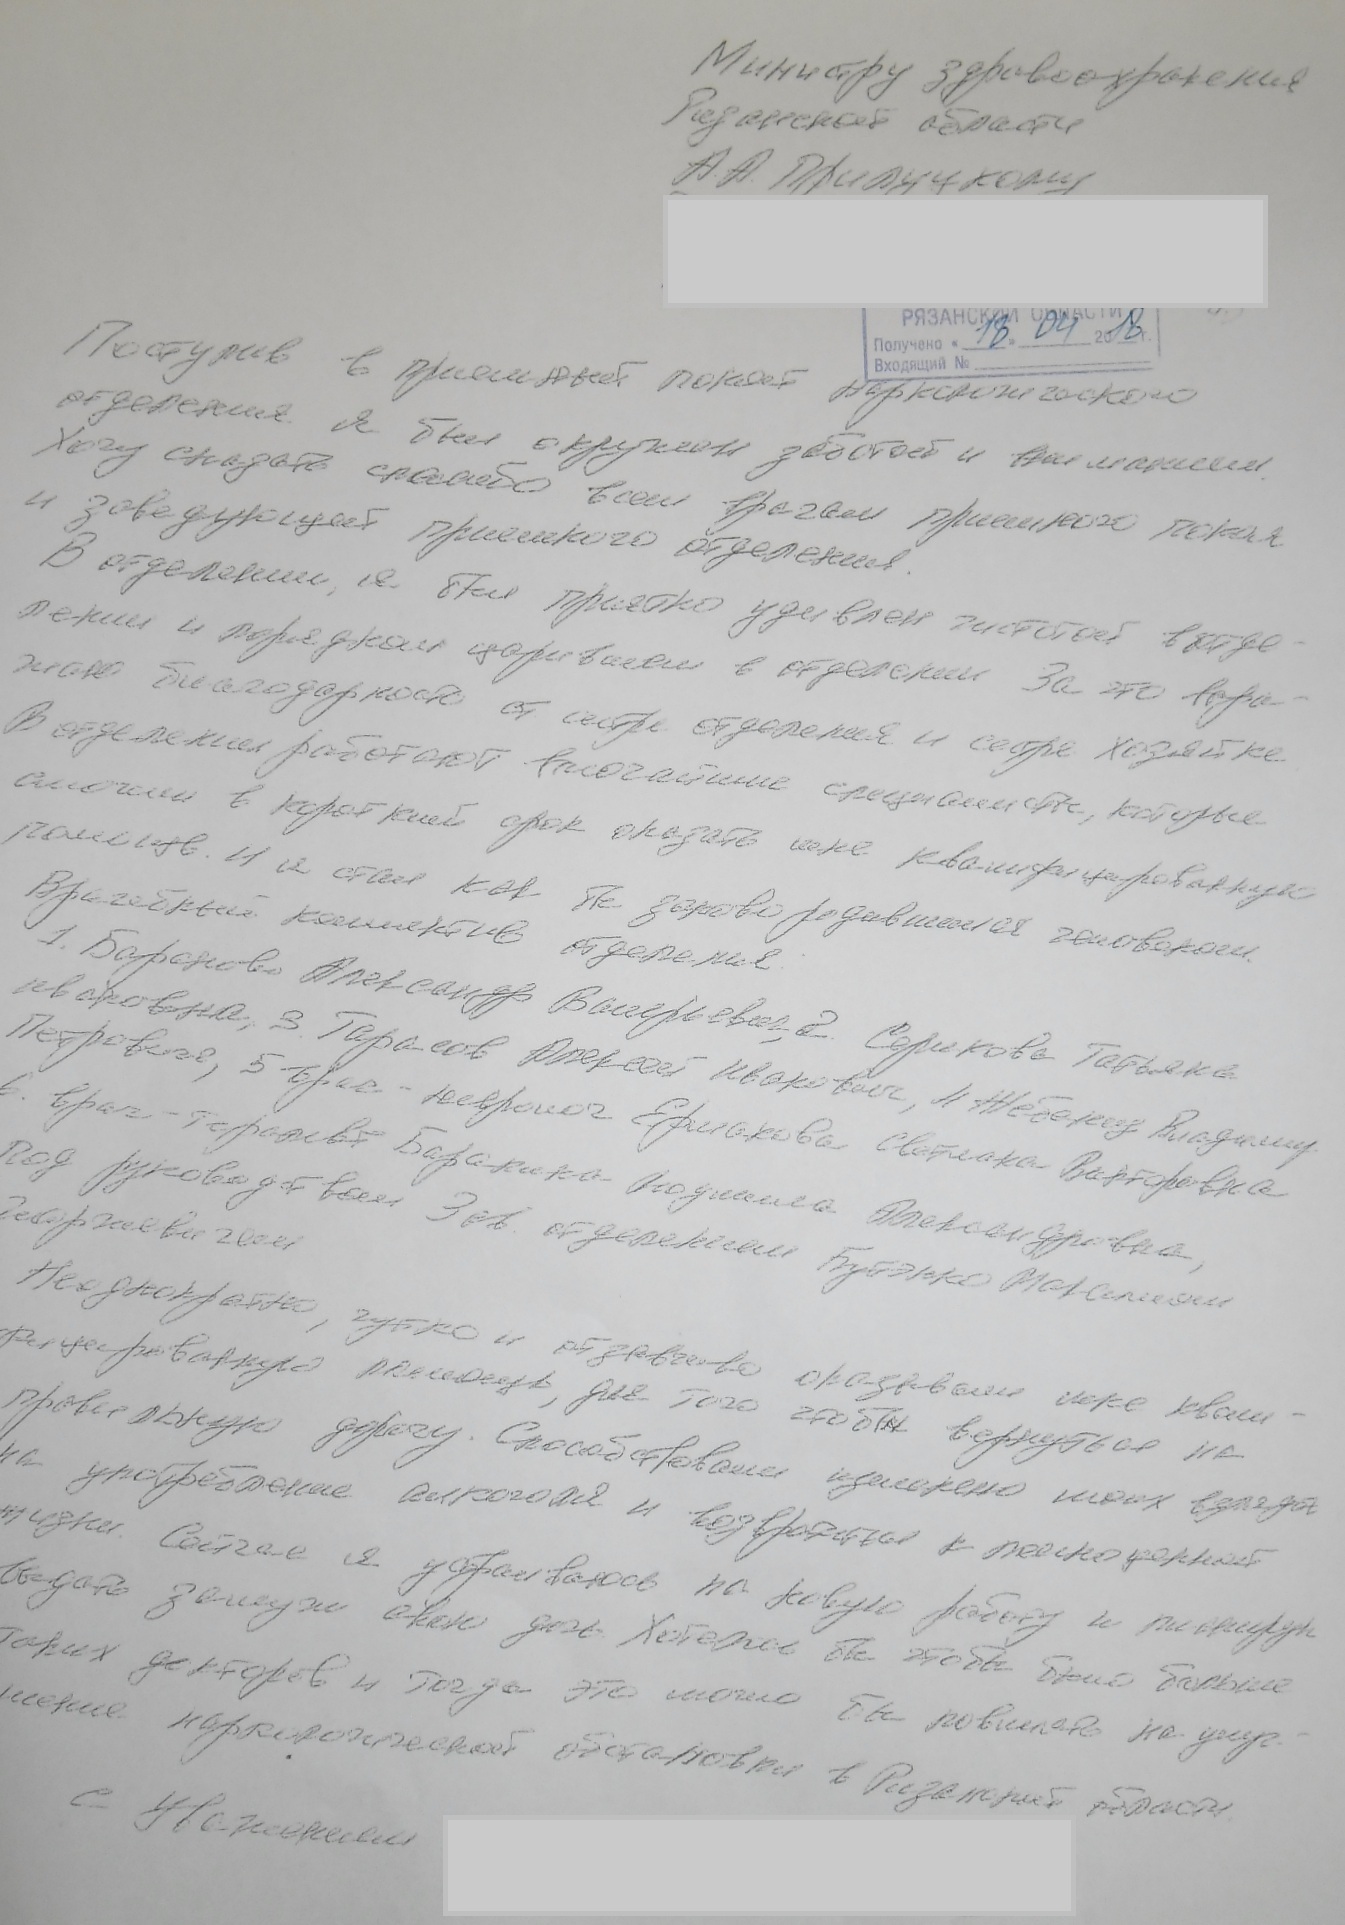 Министру здравоохранения
Рязанской области
А.А. Прилуцкому
РЯЗАНСКОЙ ОБЛАСТИ
Получено « 18 » 04 2018 г.
Входящий №
Поступив в приемный покой наркологического
отделения я был окружен заботой и вниманием.
Хочу сказать спасибо всем врачам приемного покоя
и заведующей приемного отделения.
В отделении, я был приятно удивлен чистотой в отде-
лении и порядком царившем в отделении За это выра-
жаю благодарность ст сестре отделения и сестре хозяйке
В отделении работают высочайшие специалисты, которые
смогли в короткий срок оказать мне квалифицированную
помощь. И я стал как бы заново родившимся человеком.
Врачебный коллектив отделения:
1. Баранова Александр Валерьевич, 2. Серикова Татьяна
ивановна, 3. Тарасов Алексей Иванович, 4 Жебенку Владимир
Петровича, 5 врач - невролог Ермакова Светлана Викторовна
6. врач-терапевт Баранина Людмила Александровна,
Под руководством Зав. отделением Бутенко Максимом
Георгиевичем
Неоднократно, чутко и отзывчиво оказывали мне квали-
фицированную помощь, для того чтобы вернуться на
правильную дорогу. Способствовали изменено моих взгляда
на употребление алкоголя и возвратиться к полноценной
жизни. Сейчас я устраиваюсь на новую работу и планирую
выдать замуж свою дочь Хотелось бы чтобы было больше
таких докторов и тогда это могло бы повлиять на улуч-
шение наркологической обстановки в Рязанской области.
С Уважением